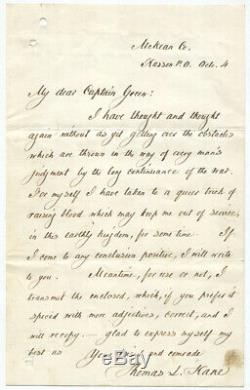 McKean Co.
Kasson P.O. Oct. 4
My dear Captain Green:
I have thought and thought
again without as yet getting over the obstacles
which are thrown in the way of every man's
judgment by the long continuance of the war.
For myself I have taken to a queer trick of
raising blood which may keep me out of service,
in this earthly kingdom, for some time. If
I come to any conclusion positive, I will write
to you. Meantime, for use or not, I
transmit the enclosed, which, if you prefer it
spiced with more adjectives, correct, and I
will recopy — glad to express myself my
best as Your friend and comrade
Thomas L. Kane